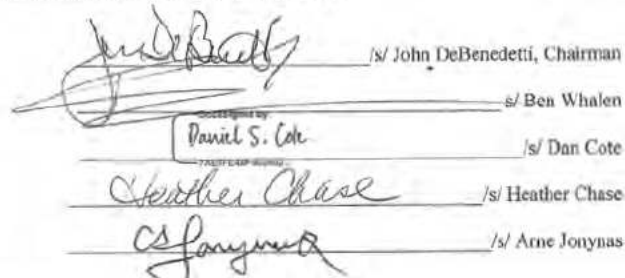 /s/ John DeBenedetti, Chairman
s/ Ben Whalen
DocuSigned by:
Daniel S. Cote /s/ Dan Cote
Heather Chase /s/ Heather Chase
/s/ Arne Jonynas